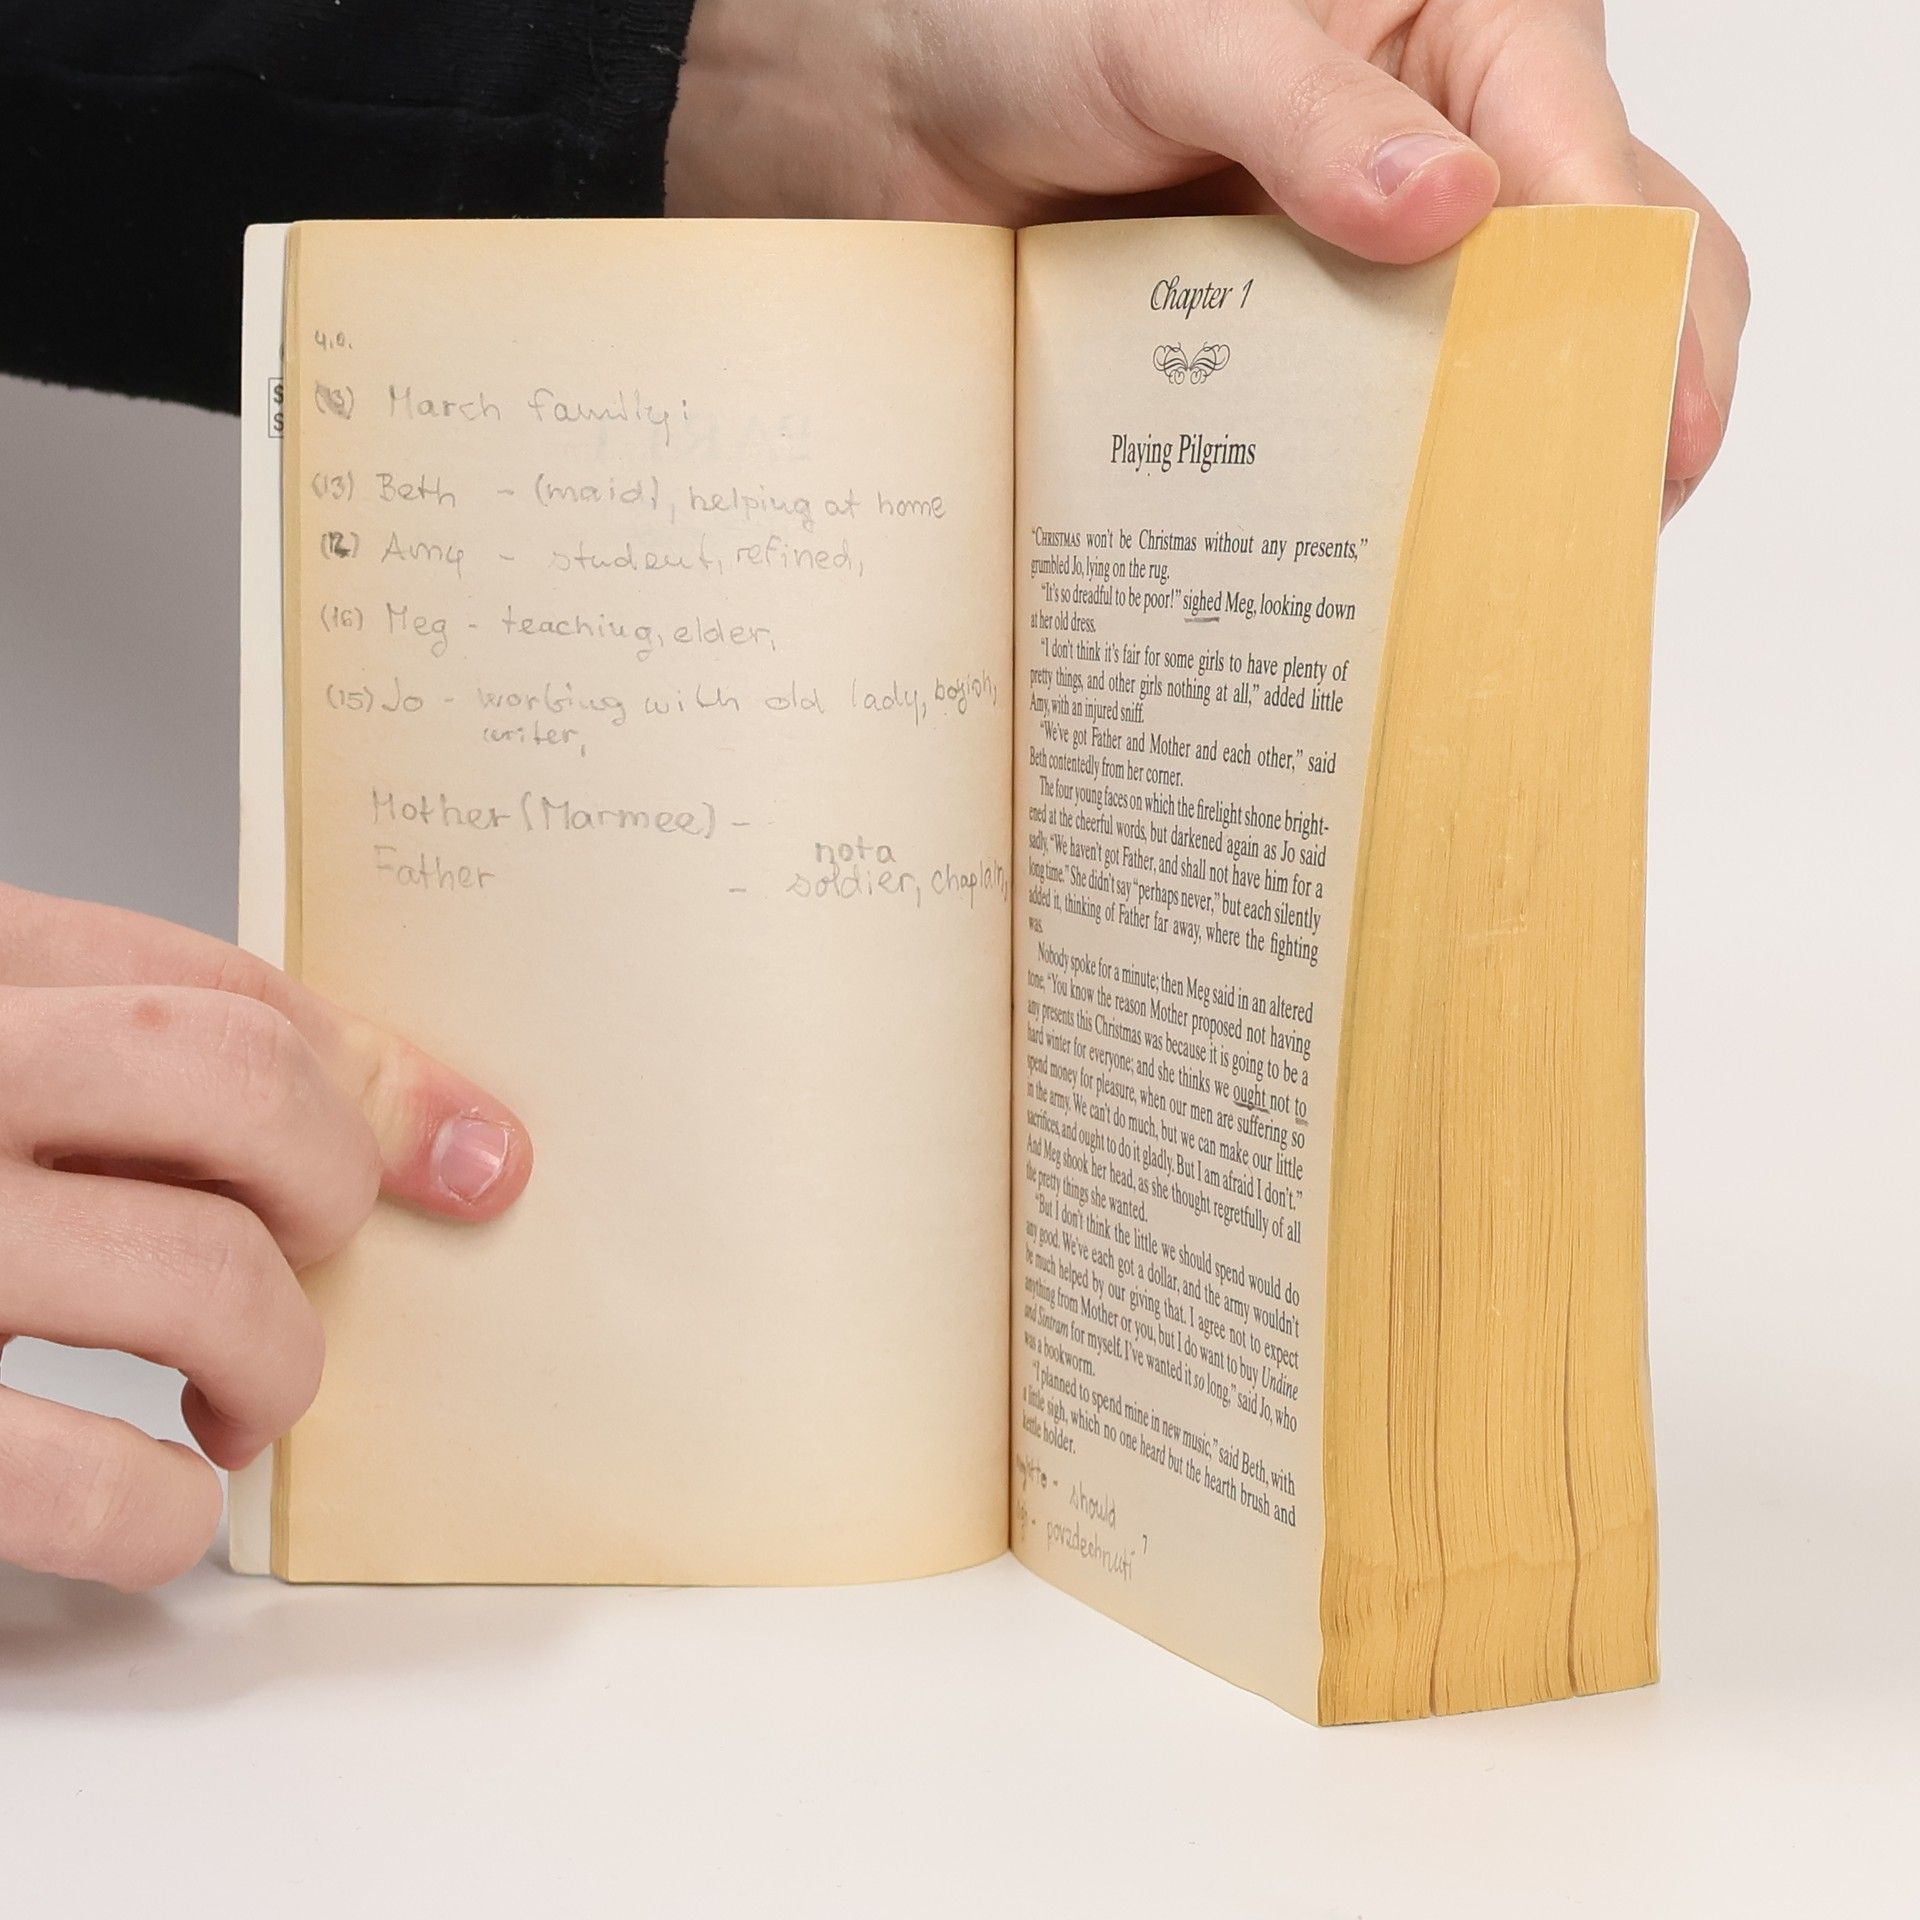 March family:
(13) Beth - (maid), helping at home
(12) Amy - student, refined,
(16) Meg - teaching, elder,
(15) Jo - working with old lady, boyish,
writer,
Mother (Marmee) -
not a
Father - soldier, chaplain,
Chapter 1
Playing Pilgrims
“CHRISTMAS won't be Christmas without any presents,”
grumbled Jo, lying on the rug.
“It's so dreadful to be poor!” sighed Meg, looking down
at her old dress.
“I don't think it's fair for some girls to have plenty of
pretty things, and other girls nothing at all,” added little
Amy, with an injured sniff.
“We've got Father and Mother and each other,” said
Beth contentedly from her corner.
The four young faces on which the firelight shone bright-
ened at the cheerful words, but darkened again as Jo said
sadly, “We haven't got Father, and shall not have him for a
long time.” She didn't say “perhaps never,” but each silently
added it, thinking of Father far away, where the fighting
was.
Nobody spoke for a minute; then Meg said in an altered
tone, “You know the reason Mother proposed not having
any presents this Christmas was because it is going to be a
hard winter for everyone; and she thinks we ought not to
spend money for pleasure, when our men are suffering so
in the army. We can't do much, but we can make our little
sacrifices, and ought to do it gladly. But I am afraid I don't.”
And Meg shook her head, as she thought regretfully of all
the pretty things she wanted.
“But I don't think the little we should spend would do
any good. We've each got a dollar, and the army wouldn't
be much helped by our giving that. I agree not to expect
anything from Mother or you, but I do want to buy Undine
and Sintram for myself. I've wanted it so long,” said Jo, who
was a bookworm.
“I planned to spend mine in new music,” said Beth, with
a little sigh, which no one heard but the hearth brush and
kettle holder.
- should
- povzdechnutí
7